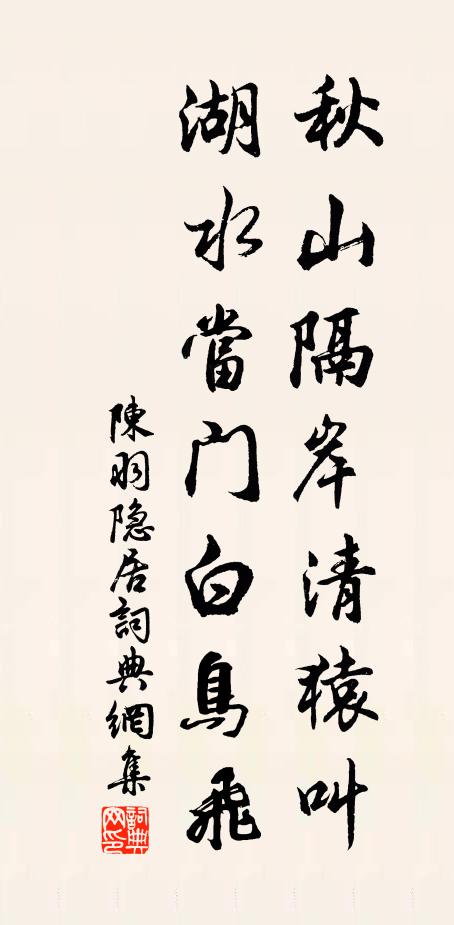 秋山隔岸清猿叫
湖水當门白鳥飛
陳羽隐居詞典網集
詞典網印